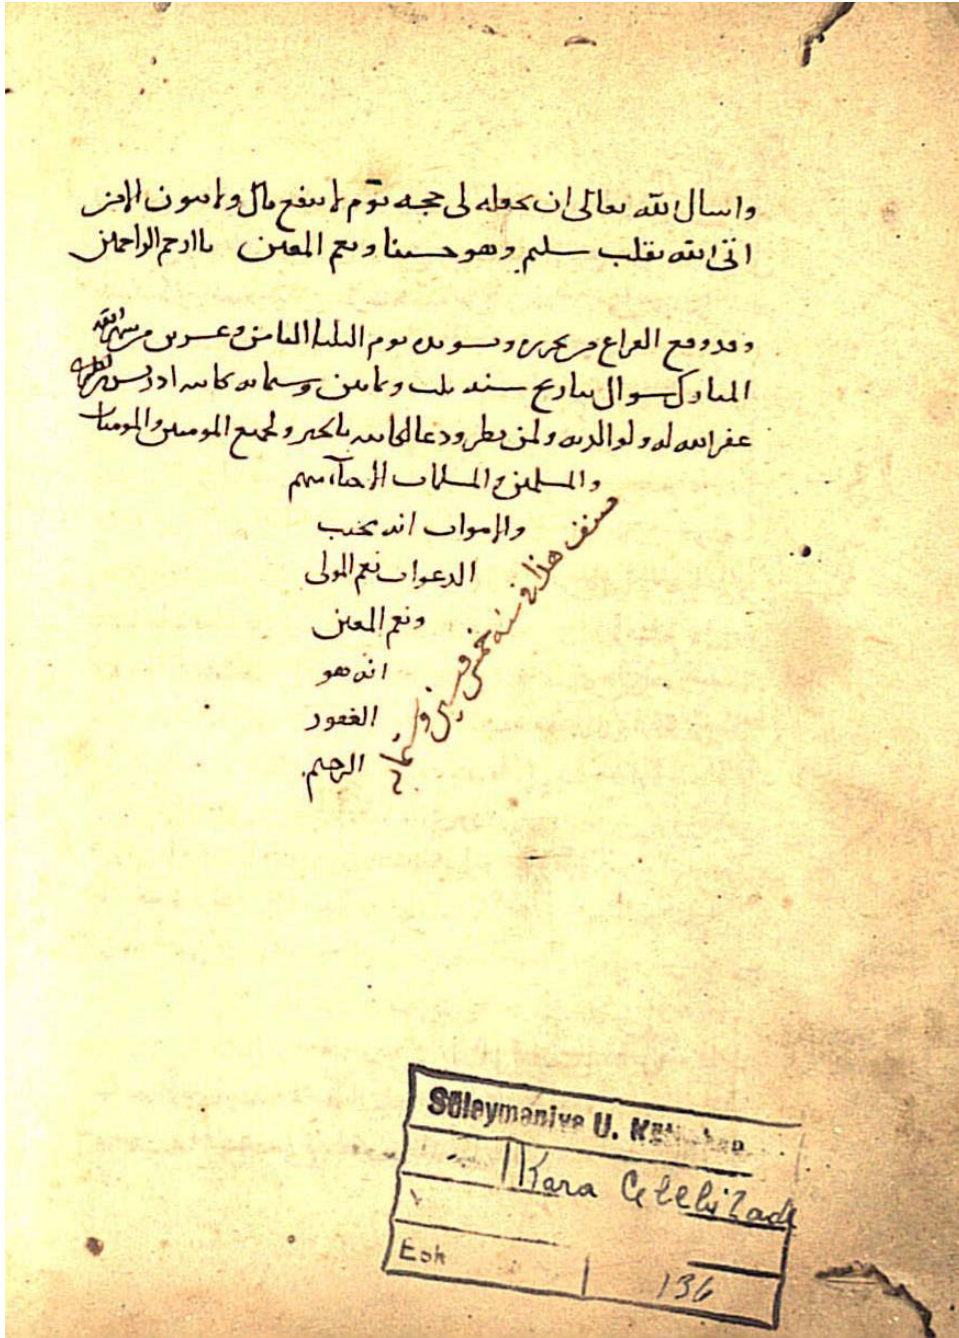 واسال الله تعالى ان يجعله لى حجه يوم لا ينفع مال ولا بنون الا من
اتى الله بقلب سليم وهو حسبنا ونعم المعين يا ارحم الراحمين
وقد وقع الفراغ من تحريره وتسويده يوم الثلثا الثامن وعشرين من شهر الله
المبارك شوال بتاريخ سنه ثلث وثمانين وستمايه كاتبه ادريس
غفر الله له ولوالديه ولمن نظر ودعا لكاتبه بالخير ولجميع المومنين والمومنات
والمسلمين والمسلمات الاحيآء منهم
والاموات انه مجيب
الدعوات نعم المولى
ونعم المعين
انه هو
الغفور
الرحيم
صنف هذا فى سنه خمس وستين وستمايه
Süleymaniye U. Kütüphan
Kara Çelebi Zade
Esk
136